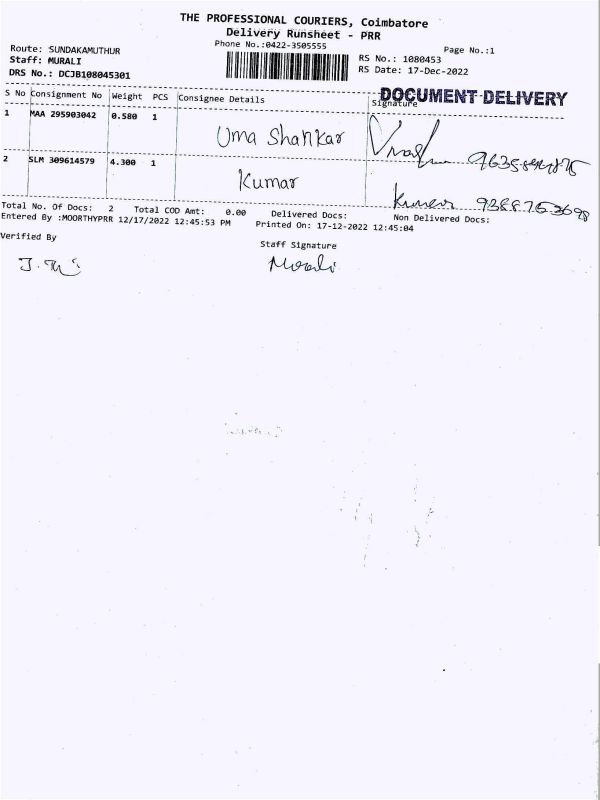 THE PROFESSIONAL COURIERS, Coimbatore
Delivery Runsheet - PRR
Phone No.:0422-3505555
Page No.:1
Route: SUNDAKAMUTHUR
Staff: MURALI
DRS No.: DCJB108045301
RS No.: 1080453
RS Date: 17-Dec-2022
DOCUMENT DELIVERY
S No Consignment No Weight PCS Consignee Details Signature
1 MAA 295903042 0.580 1
Uma Shankar
2 SLM 309614579 4.300 1
Kumar
Kumar 9388753698
Total No. Of Docs: 2 Total COD Amt: 0.00 Delivered Docs: Non Delivered Docs:
Entered By :MOORTHYPRR 12/17/2022 12:45:53 PM Printed On: 17-12-2022 12:45:04
Verified By
Staff Signature
Murali